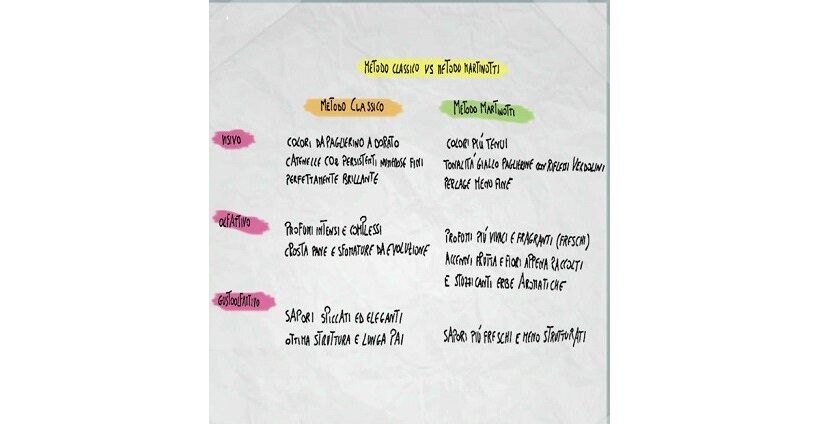 METODO CLASSICO VS METODO MARTINOTTI
METODO CLASSICO
METODO MARTINOTTI
VISIVO
COLORI DA PAGLIERINO A DORATO
CATENELLE CO2 PERSISTENTI NUMEROSE FINI
PERFETTAMENTE BRILLANTE
COLORI PIÚ TENUI
TONALITÁ GIALLO PAGLIERINE CON RIFLESSI VERDOLINI
PERLAGE MENO FINE
OLFATTIVO
PROFUMI INTENSI E COMPLESSI
CROSTA PANE E SFUMATURE DA EVOLUZIONE
PROFUMI PIÚ VIVACI E FRAGRANTI (FRESCHI)
ACCENNI FRUTTA E FIORI APPENA RACCOLTI
E STUZZICANTI ERBE AROMATICHE
GUSTOOLFATTIVO
SAPORI SPICCATI ED ELEGANTI
OTTIMA STRUTTURA E LUNGA PAI
SAPORI PIÚ FRESCHI E MENO STRUTTURATI